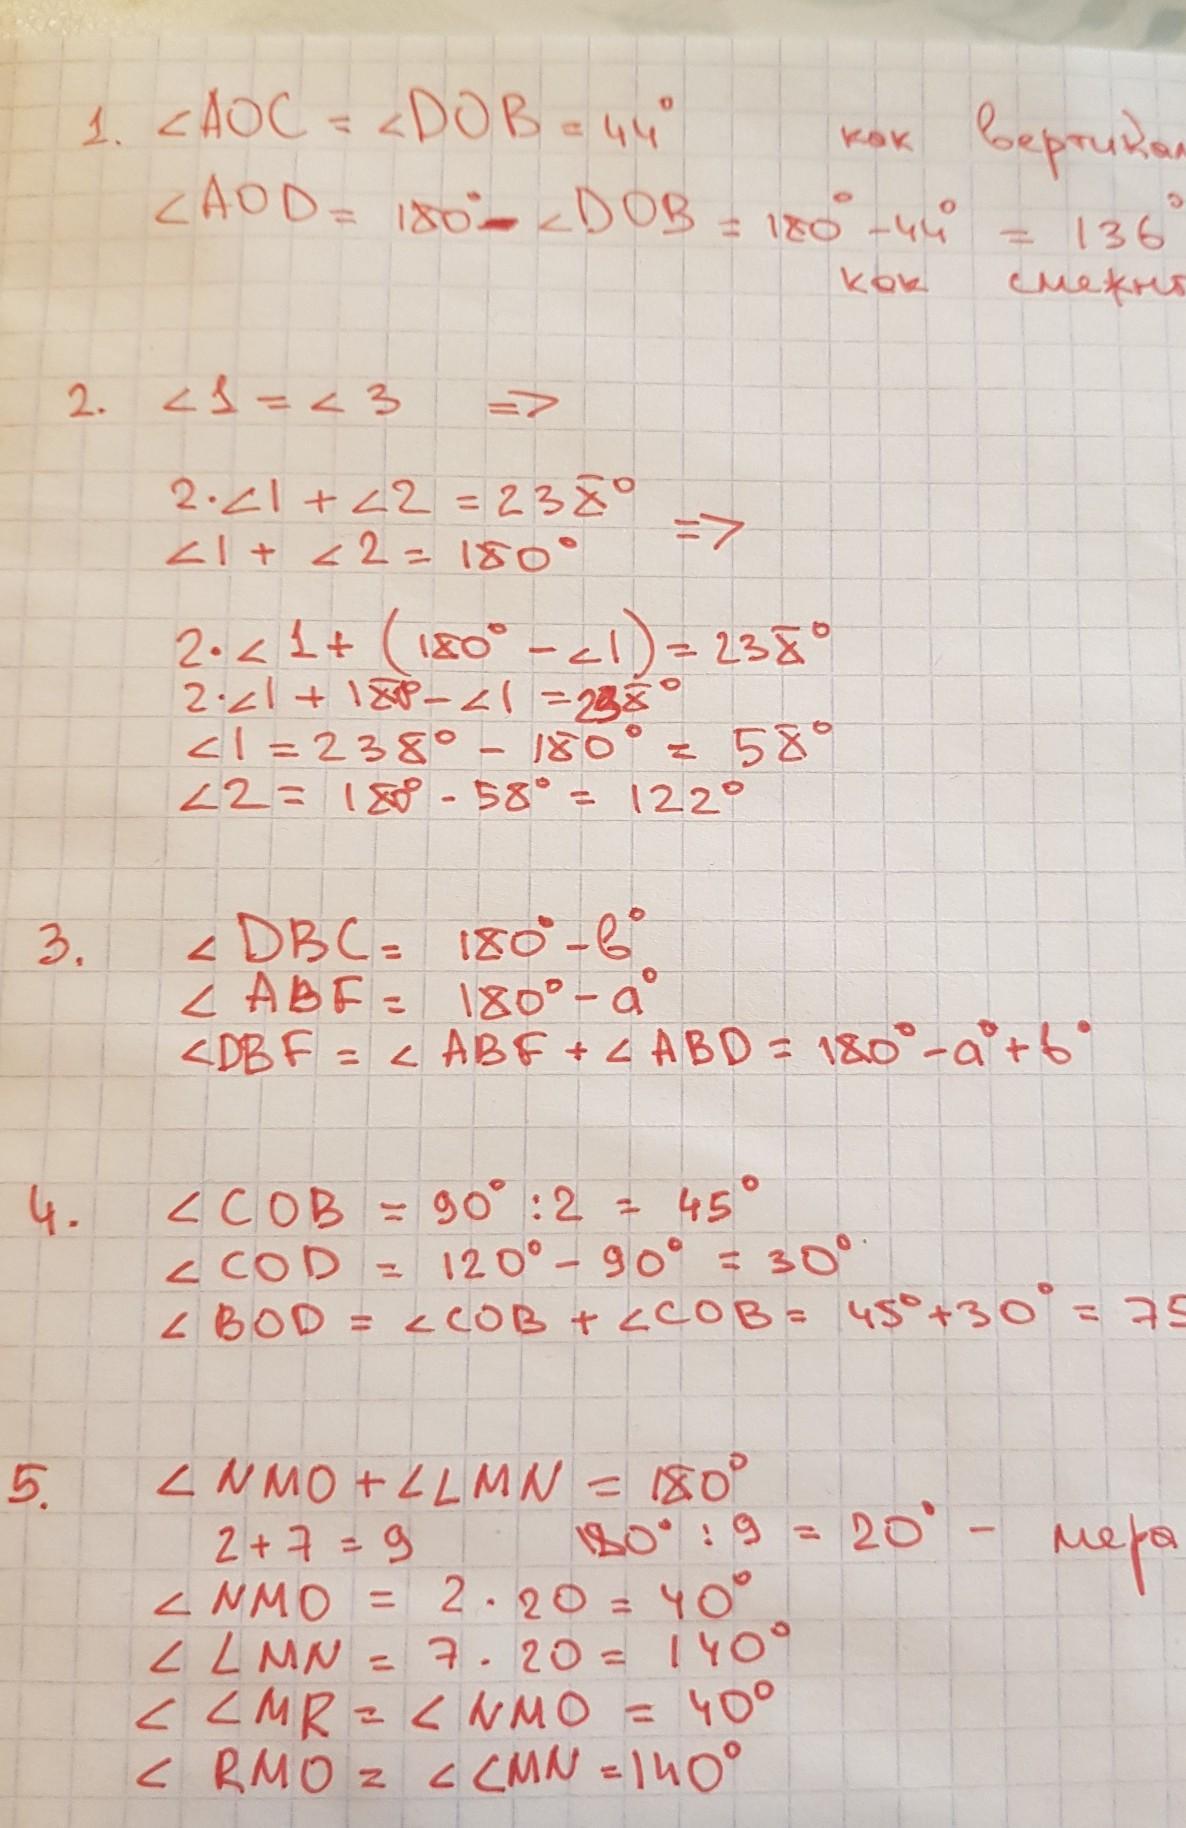 1. ∠AOC = ∠DOB = 44° как вертикал
∠AOD = 180° - ∠DOB = 180° - 44° = 136°
как смежн
2. ∠1 = ∠3 =>
2·∠1 + ∠2 = 238°
=>
∠1 + ∠2 = 180°
2·∠1 + (180° - ∠1) = 238°
2·∠1 + 180° - ∠1 = 238°
∠1 = 238° - 180° = 58°
∠2 = 180° - 58° = 122°
3. ∠DBC = 180° - b°
∠ABF = 180° - a°
∠DBF = ∠ABF + ∠ABD = 180° - a° + b°
4. ∠COB = 90° : 2 = 45°
∠COD = 120° - 90° = 30°
∠BOD = ∠COB + ∠COB = 45° + 30° = 75
5. ∠NMO + ∠LMN = 180°
2 + 7 = 9 180° : 9 = 20° - мера
∠NMO = 2 · 20 = 40°
∠LMN = 7 · 20 = 140°
∠LMR = ∠NMO = 40°
∠RMO = ∠LMN = 140°